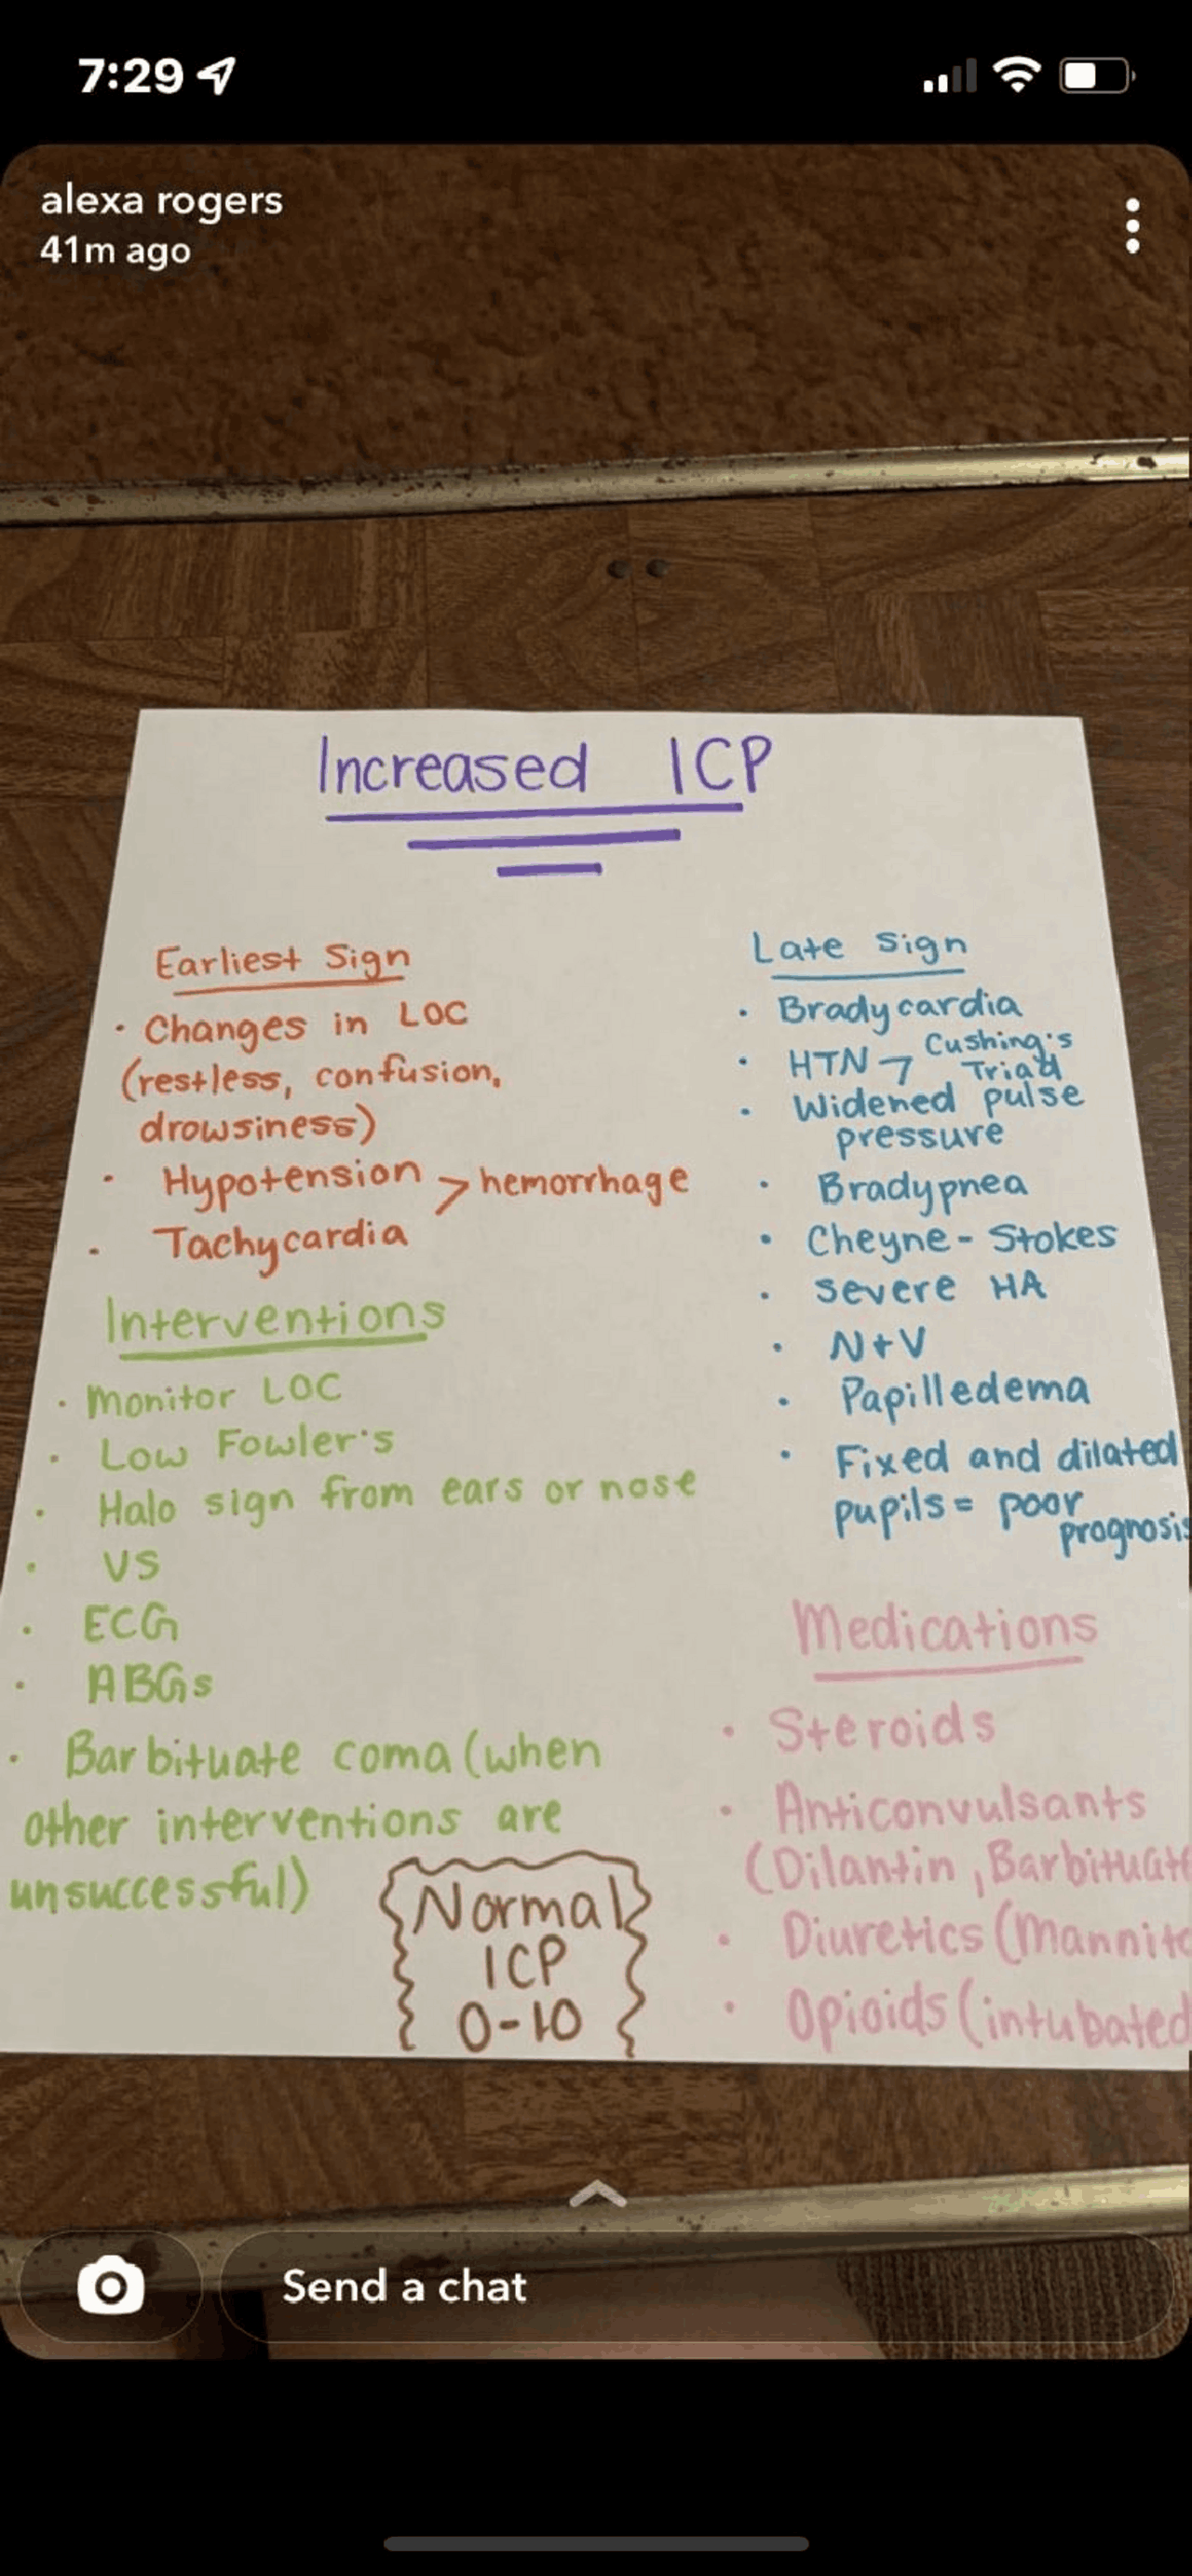 7:29
alexa rogers
41m ago
Increased ICP
Earliest Sign
• Changes in LOC
(restless, confusion,
drowsiness)
• Hypotension > hemorrhage
• Tachycardia
Interventions
• Monitor LOC
• Low Fowler's
• Halo sign from ears or nose
• VS
• ECG
• ABGs
• Barbituate coma (when
other interventions are
unsuccessful)
Normal
ICP
0-10
Late Sign
• Bradycardia
• HTN > Cushing's
Triad
• Widened pulse
pressure
• Bradypnea
• Cheyne-Stokes
• Severe HA
• N+V
• Papilledema
• Fixed and dilated
pupils = poor
prognosis
Medications
• Steroids
• Anticonvulsants
(Dilantin, Barbituate
• Diuretics (Mannito
• Opioids (intubated
Send a chat